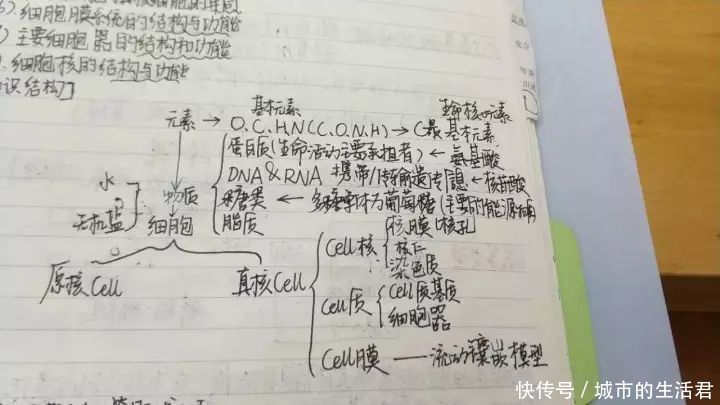 6).细胞膜系统的结构与功能
)主要细胞器的结构和功能
).细胞核的结构与功能
识结构〕
基本元素
元素 → O.C.H.N(C.O.N.H) → C最基本元素
蛋白质(生命活动主要承担者) ← 氨基酸
DNA&RNA 携带/传 遗传 ← 核苷酸
水
物质
糖类 ← 多糖 为葡萄糖(主要的能源
无机盐
脂质
细胞
原核Cell
真核Cell
Cell核
核膜 核孔
核仁
染色质
Cell质
Cell质基质
细胞器
Cell膜 —— 流动镶嵌模型
快传号 / 城市的生活君